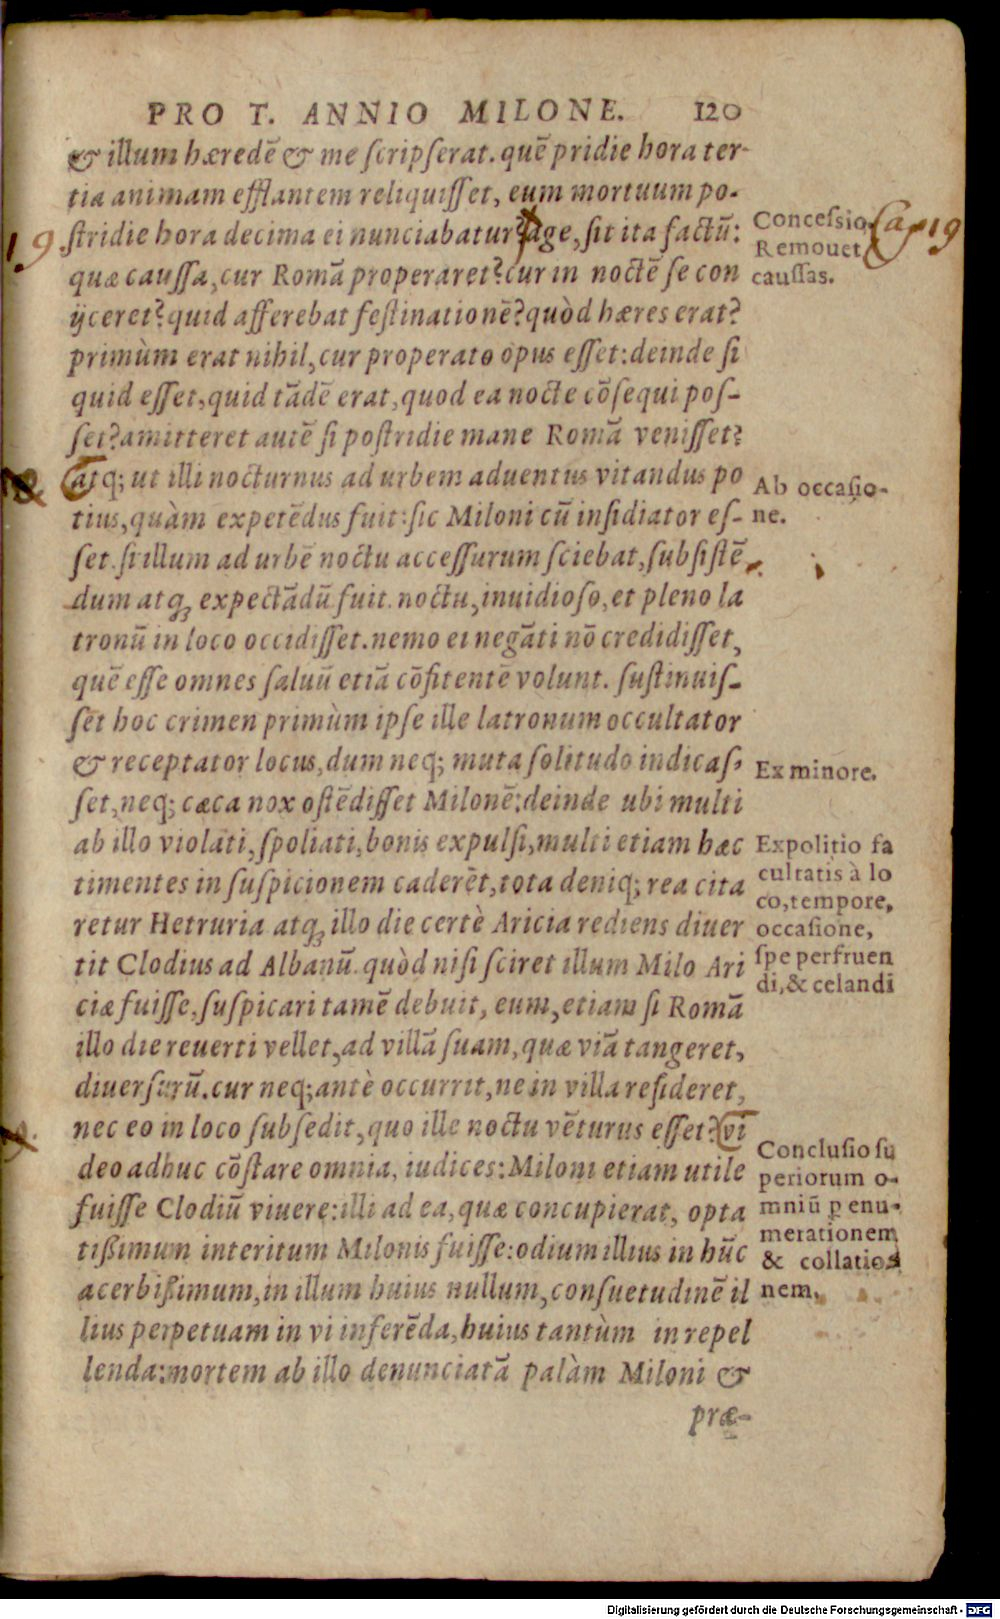 PRO T. ANNIO MILONE. 120
& illum hæredē & me scripserat. quē pridie hora ter-
tia animam efflantem reliquisset, eum mortuum po-
stridie hora decima ei nunciabatur? age, sit ita factū:
quæ caussa, cur Romā properaret? cur in noctē se con
ijceret? quid afferebat festinationē? quòd hæres erat?
primùm erat nihil, cur properato opus esset: deinde si
quid esset, quid tādē erat, quod ea nocte cōsequi pos-
set? amitteret autē si postridie mane Romā venisset?
atq; ut illi nocturnus ad urbem aduentus vitandus po
tius, quàm expetēdus fuit: sic Miloni cū insidiator es-
set. si illum ad urbē noctu accessurum sciebat, subsistē
dum atq; expectādū fuit. noctu, inuidioso, et pleno la
tronū in loco occidisset. nemo ei negāti nō credidisset,
quē esse omnes saluū etiā cōfitentē volunt. sustinuis-
sēt hoc crimen primùm ipse ille latronum occultator
& receptator locus, dum neq; muta solitudo indicas,
set, neq; cæca nox ostēdisset Milonē: deinde ubi multi
ab illo violati, spoliati, bonis expulsi, multi etiam hæc
timentes in suspicionem caderēt, tota deniq; rea cita
retur Hetruria atq; illo die certè Aricia rediens diuer
tit Clodius ad Albanū. quòd nisi sciret illum Milo Ari
ciæ fuisse, suspicari tamē debuit, eum, etiam si Romā
illo die reuerti vellet, ad villā suam, quæ viā tangeret,
diuersurū. cur neq; antè occurrit, ne in villa resideret,
nec eo in loco subsedit, quo ille noctu vēturus esset? vi
deo adhuc cōstare omnia, iudices: Miloni etiam utile
fuisse Clodiū viuere: illi ad ea, quæ concupierat, opta
tißimum interitum Milonis fuisse: odium illius in hūc
acerbißimum, in illum huius nullum, consuetudinē il
lius perpetuam in vi inferēda, huius tantùm in repel
lenda: mortem ab illo denunciatā palàm Miloni &
præ-
Concessio
Remouet
caussas.
Cap 19
19
18
Ab occasio-
ne.
Ex minore.
Expolitio fa
cultatis à lo
co, tempore,
occasione,
spe perfruen
di, & celandi
Conclusio su
periorum o-
mniū p enu-
merationem
& collatio-
nem.
Digitalisierung gefördert durch die Deutsche Forschungsgemeinschaft - DFG